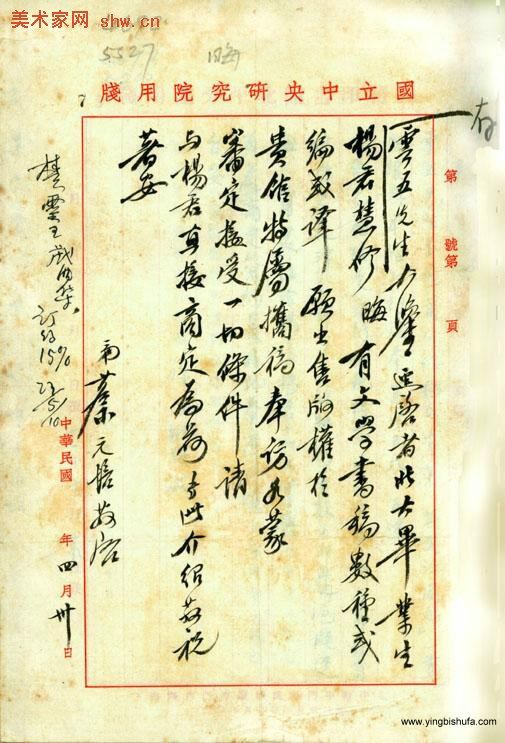 美术家网 shw.cn
5527
晦
國立中央研究院用牋
存
第 號第 頁
雲五先生大鑒逕啓者北大畢業生
楊君慧修晦有文學書稿數種或
編或譯願出售版權於
貴館特屬攜稿奉訪如蒙
審定接受一切條件請
与楊君直接商定為荷專此介紹並祝
著安
弟蔡元培敬啓
訂約15%
中華民國 年四月卅日
www.yingbishufa.com